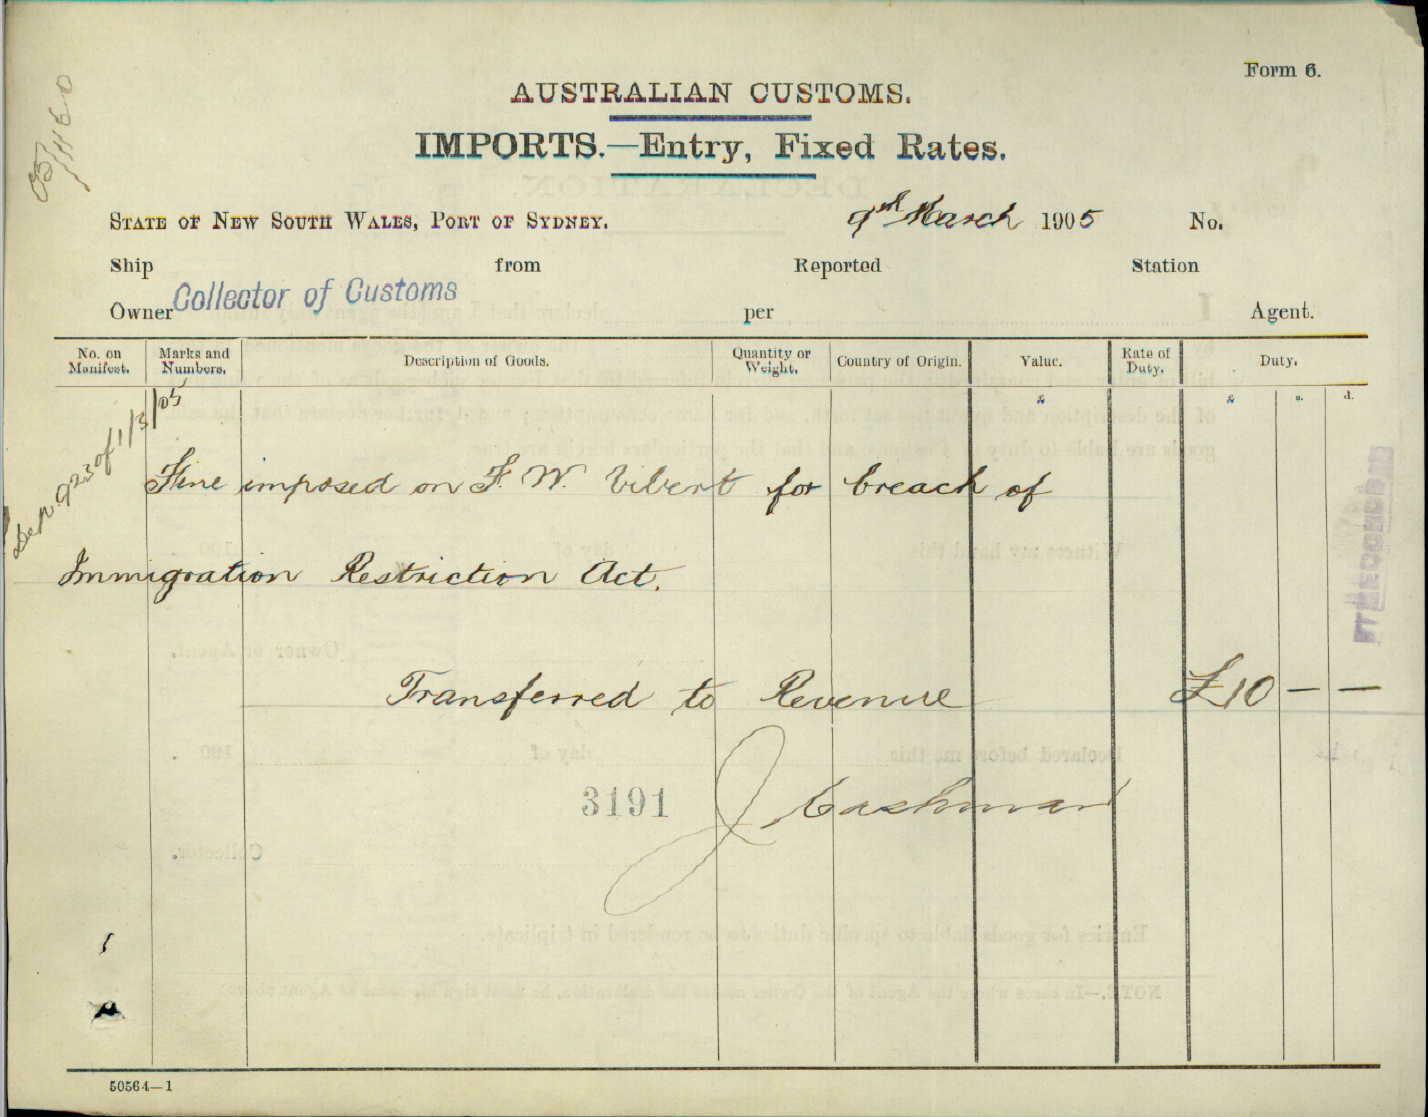 Form 6.
05/1460
AUSTRALIAN CUSTOMS.
IMPORTS.—Entry, Fixed Rates.
STATE OF NEW SOUTH WALES, PORT OF SYDNEY. 9th March 1905 No.
Ship from Reported Station
Owner Collector of Customs per Agent.
No. on Manifest. Marks and Numbers. Description of Goods. Quantity or Weight. Country of Origin. Value. Rate of Duty. Duty.
£ £ s. d.
Dep. 923 of 1/3/05
Fine imposed on F. W. Vibert for breach of
Immigration Restriction Act.
Transferred to Revenue £10 — —
3191 J Cashman
50564—1